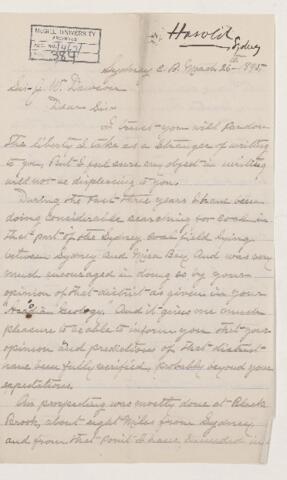 McGILL UNIVERSITY
ARCHIVES
ACC. NO. 1462
REF. 38A
Harold, Sydney
Sydney C. B. March 26th 1895
Sir J. W. Dawson
Dear Sir
I trust you will pardon
the liberty I take as a stranger of writing
to you, But I feel sure my object in writing
will not be displeasing to you.
During the past three years I have been
doing considerable searching for coal in
that part of the Sydney coal field lying
between Sydney and Mira Bay And was very
much encouraged in doing so by your
opinion of that district as given in your
"Acadian Geology". And it gives me much
pleasure to be able to inform you that your
opinion and predictions of that district
have been fully verified, probably beyond your
expectations.
Our prospecting was mostly done at Black
Brook, about eight Miles from Sydney
and from that point I have, extended in